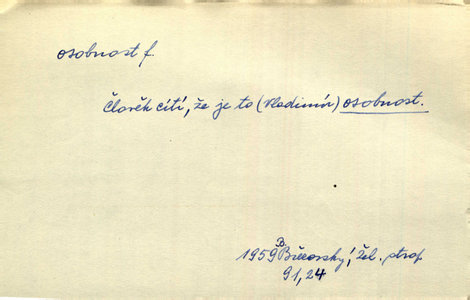 osobnost f.
Člověk cítí, že je to (Vladimír) osobnost.
1959 B. Březovský, Žel. strop
91, 24